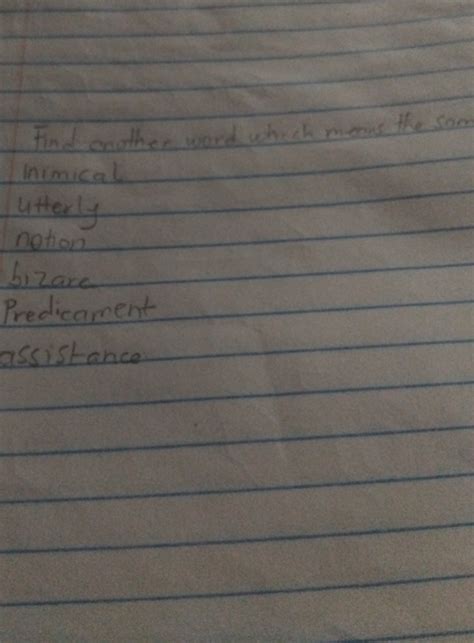 Find another word which means the sam
inimical
utterly
notion
bizare
Predicament
assistance